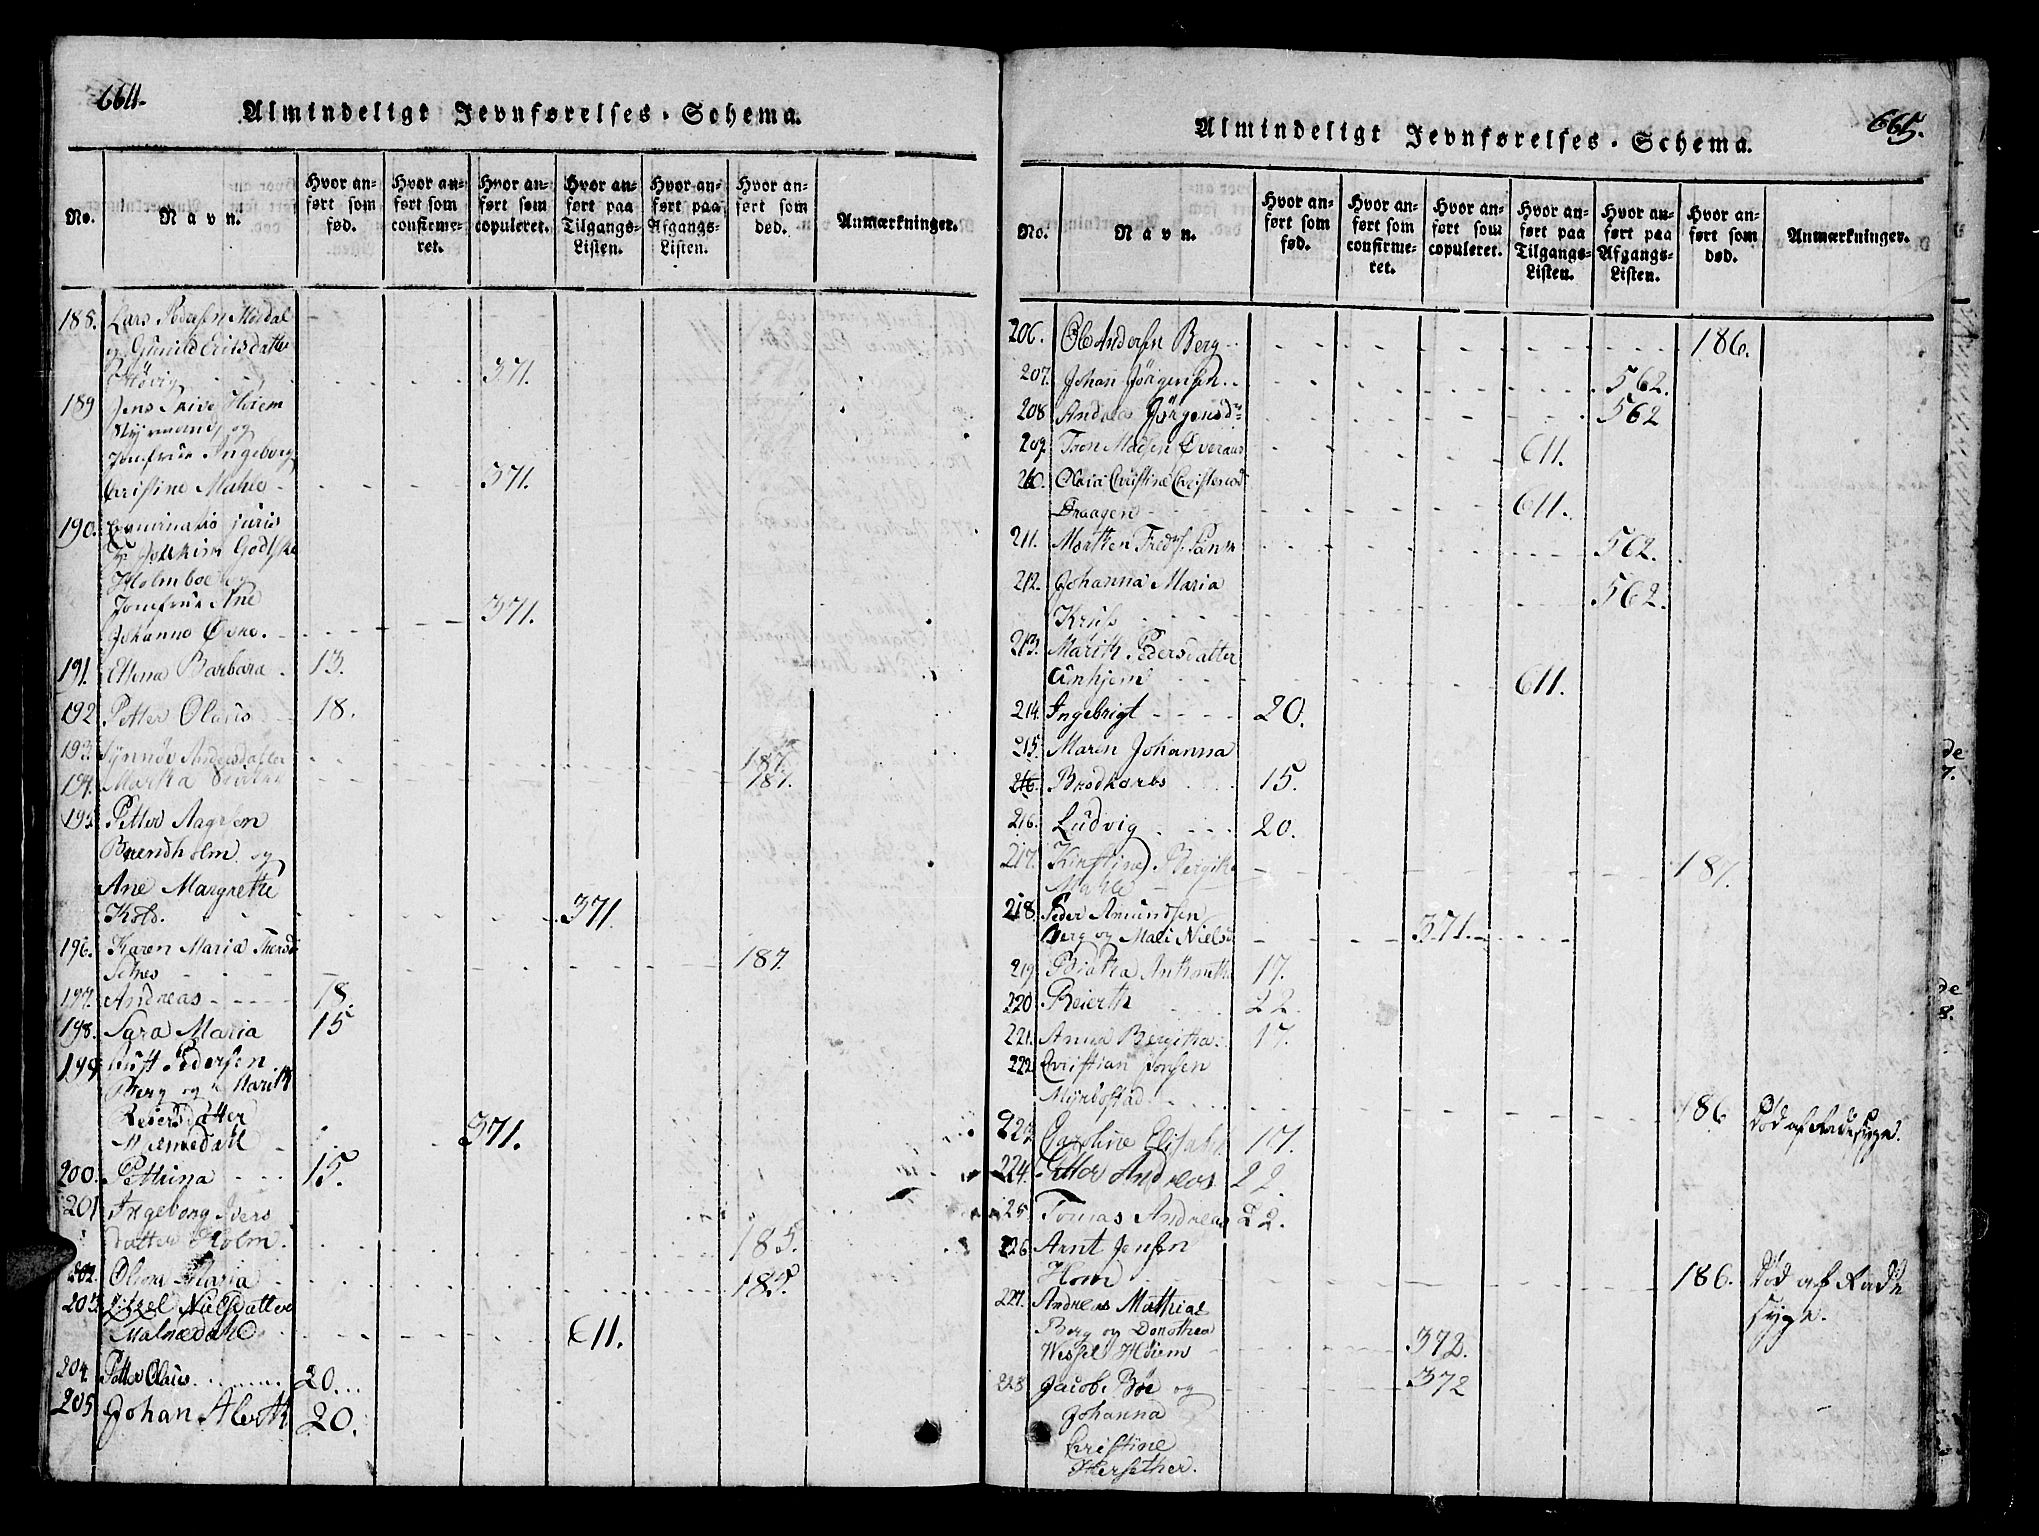 664.
Almindeligt Jevnførelses-Schema.
No.
Navn.
Hvor anført som fød.
Hvor anført som confirmeret.
Hvor anført som copuleret.
Hvor anført paa Tilgangs-Listen.
Hvor anført paa Afgangs-Listen.
Hvor anført som død.
Anmærkninger.
188. Lars Pedersen Mördal
og Gunild Erichsdatter
Høvig 371.
189 Jens Höiem
og
Jomfrue Ingeborg
Christine Mahle 371.
190. Examinatus juris
Hr Joakim Godtske
Holmboe og
Jomfrue Ane
Johanne 371.
191. Ellena Barbara 13.
192. Petter Olaus 18.
193. Synnöv Andersdatter 187.
194. Martha 187.
195. Petter Aagesen
Brendholm og
Ane Margrethe
Kold. 371.
196. Karen Maria
187.
197. Andreas 18.
198. Sara Maria 15
199. Pedersen
Berg og Marith
Reiersdatter
Mjelmedahl 371.
200. Pettrina 15.
201 Ingeborg Ivers
datter Holm. 185.
202. Maria 187.
203. Nielsdatter
Malmedahl 611.
204. Petter Olaus 20.
205. Johan Alerth 20.
665.
Almindeligt Jevnførelses-Schema.
No.
Navn.
Hvor anført som fød.
Hvor anført som confirmeret.
Hvor anført som copuleret.
Hvor anført paa Tilgangs-Listen.
Hvor anført paa Afgangs-Listen.
Hvor anført som død.
Anmærkninger.
206. Ole Andersen Berg 186.
207. Johan Jörgensen 562.
208. Andrea Jörgensd: 562
209. Tron Madsen Overaas 611.
210. Christine Christensd
Draagen 611.
211. Mortten 562.
212. Johanna Maria
Kruse 562.
213. Marith Pedersdatter
Unhjem 611.
214. Ingebrigt 20.
215. Maren Johanna
216. Brodkorbs 15.
216. Ludvig 20.
217. Kirstine
Mahle 187.
218. Peder Amundsen
Berg og Mali Nielsd 371.
219. Beatha Anthonetta 17.
220. Reierth 22.
221. Anna Bergitha 17.
222. Christian Jonsen
Myrbostad. 186 Död af Radesyge.
223. Caroline Elisabet 17.
224. Petter Andreas 22.
225. Tomas Andreas 22.
226. Arnt Jensen
Hom 186. Död af Rade
syge.
227. Andreas Mathias
Berg og Dorothea
Wessel Höiem 372.
228. Jacob Böe og 372
Johanna
Christine
Hersether.
de
7.
de
8.